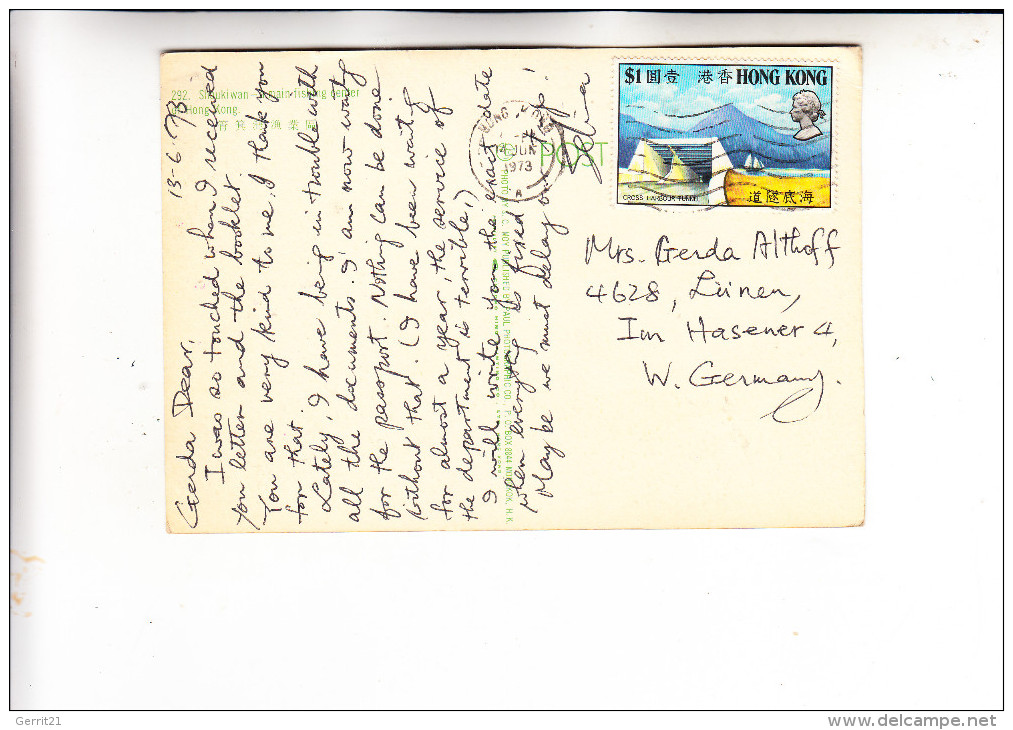 13-6-73
Gerda Dear,
I was so touched when I received
you letter and the booklet.
You are very kind to me. I thank you
for that.
Lately, I have being in trouble with
all the documents. I am now waitg
for the passport. Nothing can be done
without that. (I have been waitg
for almost a year, the service of
the department is terrible,)
I will write you the exait date
when everyg is fixed up.
May be we must delay our
292. Shaukiwan - main fishing center
of Hong Kong.
筲箕灣漁業區
POST
HONG KONG
14 JUN
1973
A
$1 圓壹 港香 HONG KONG
CROSS HARBOUR TUNNEL
道隧底海
Mrs. Gerda Althoff
4628, Lünen,
Im Hasener 4,
W. Germany.
PUBLISHED BY PAUL PHOTOGRAPHIC CO., P. O. BOX 8844 H.K.
Gerrit21
www.delcampe.net